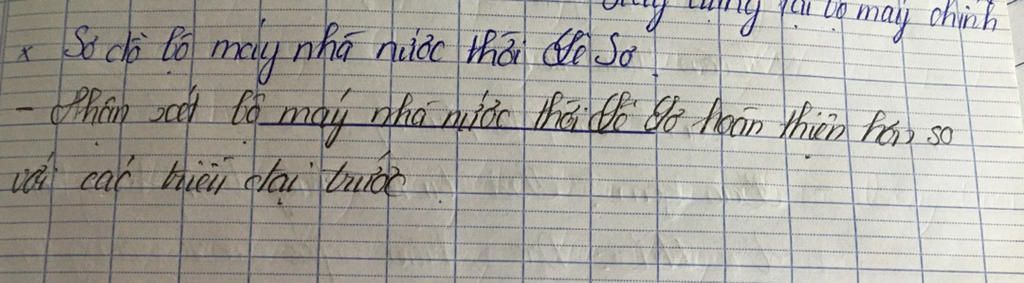 lại bộ máy chính
x Sơ đồ bộ máy nhà nước thời Lê Sơ
- Nhận xét bộ máy nhà nước thời Lê Sơ hoàn thiện hơn so
với các triều đại trước